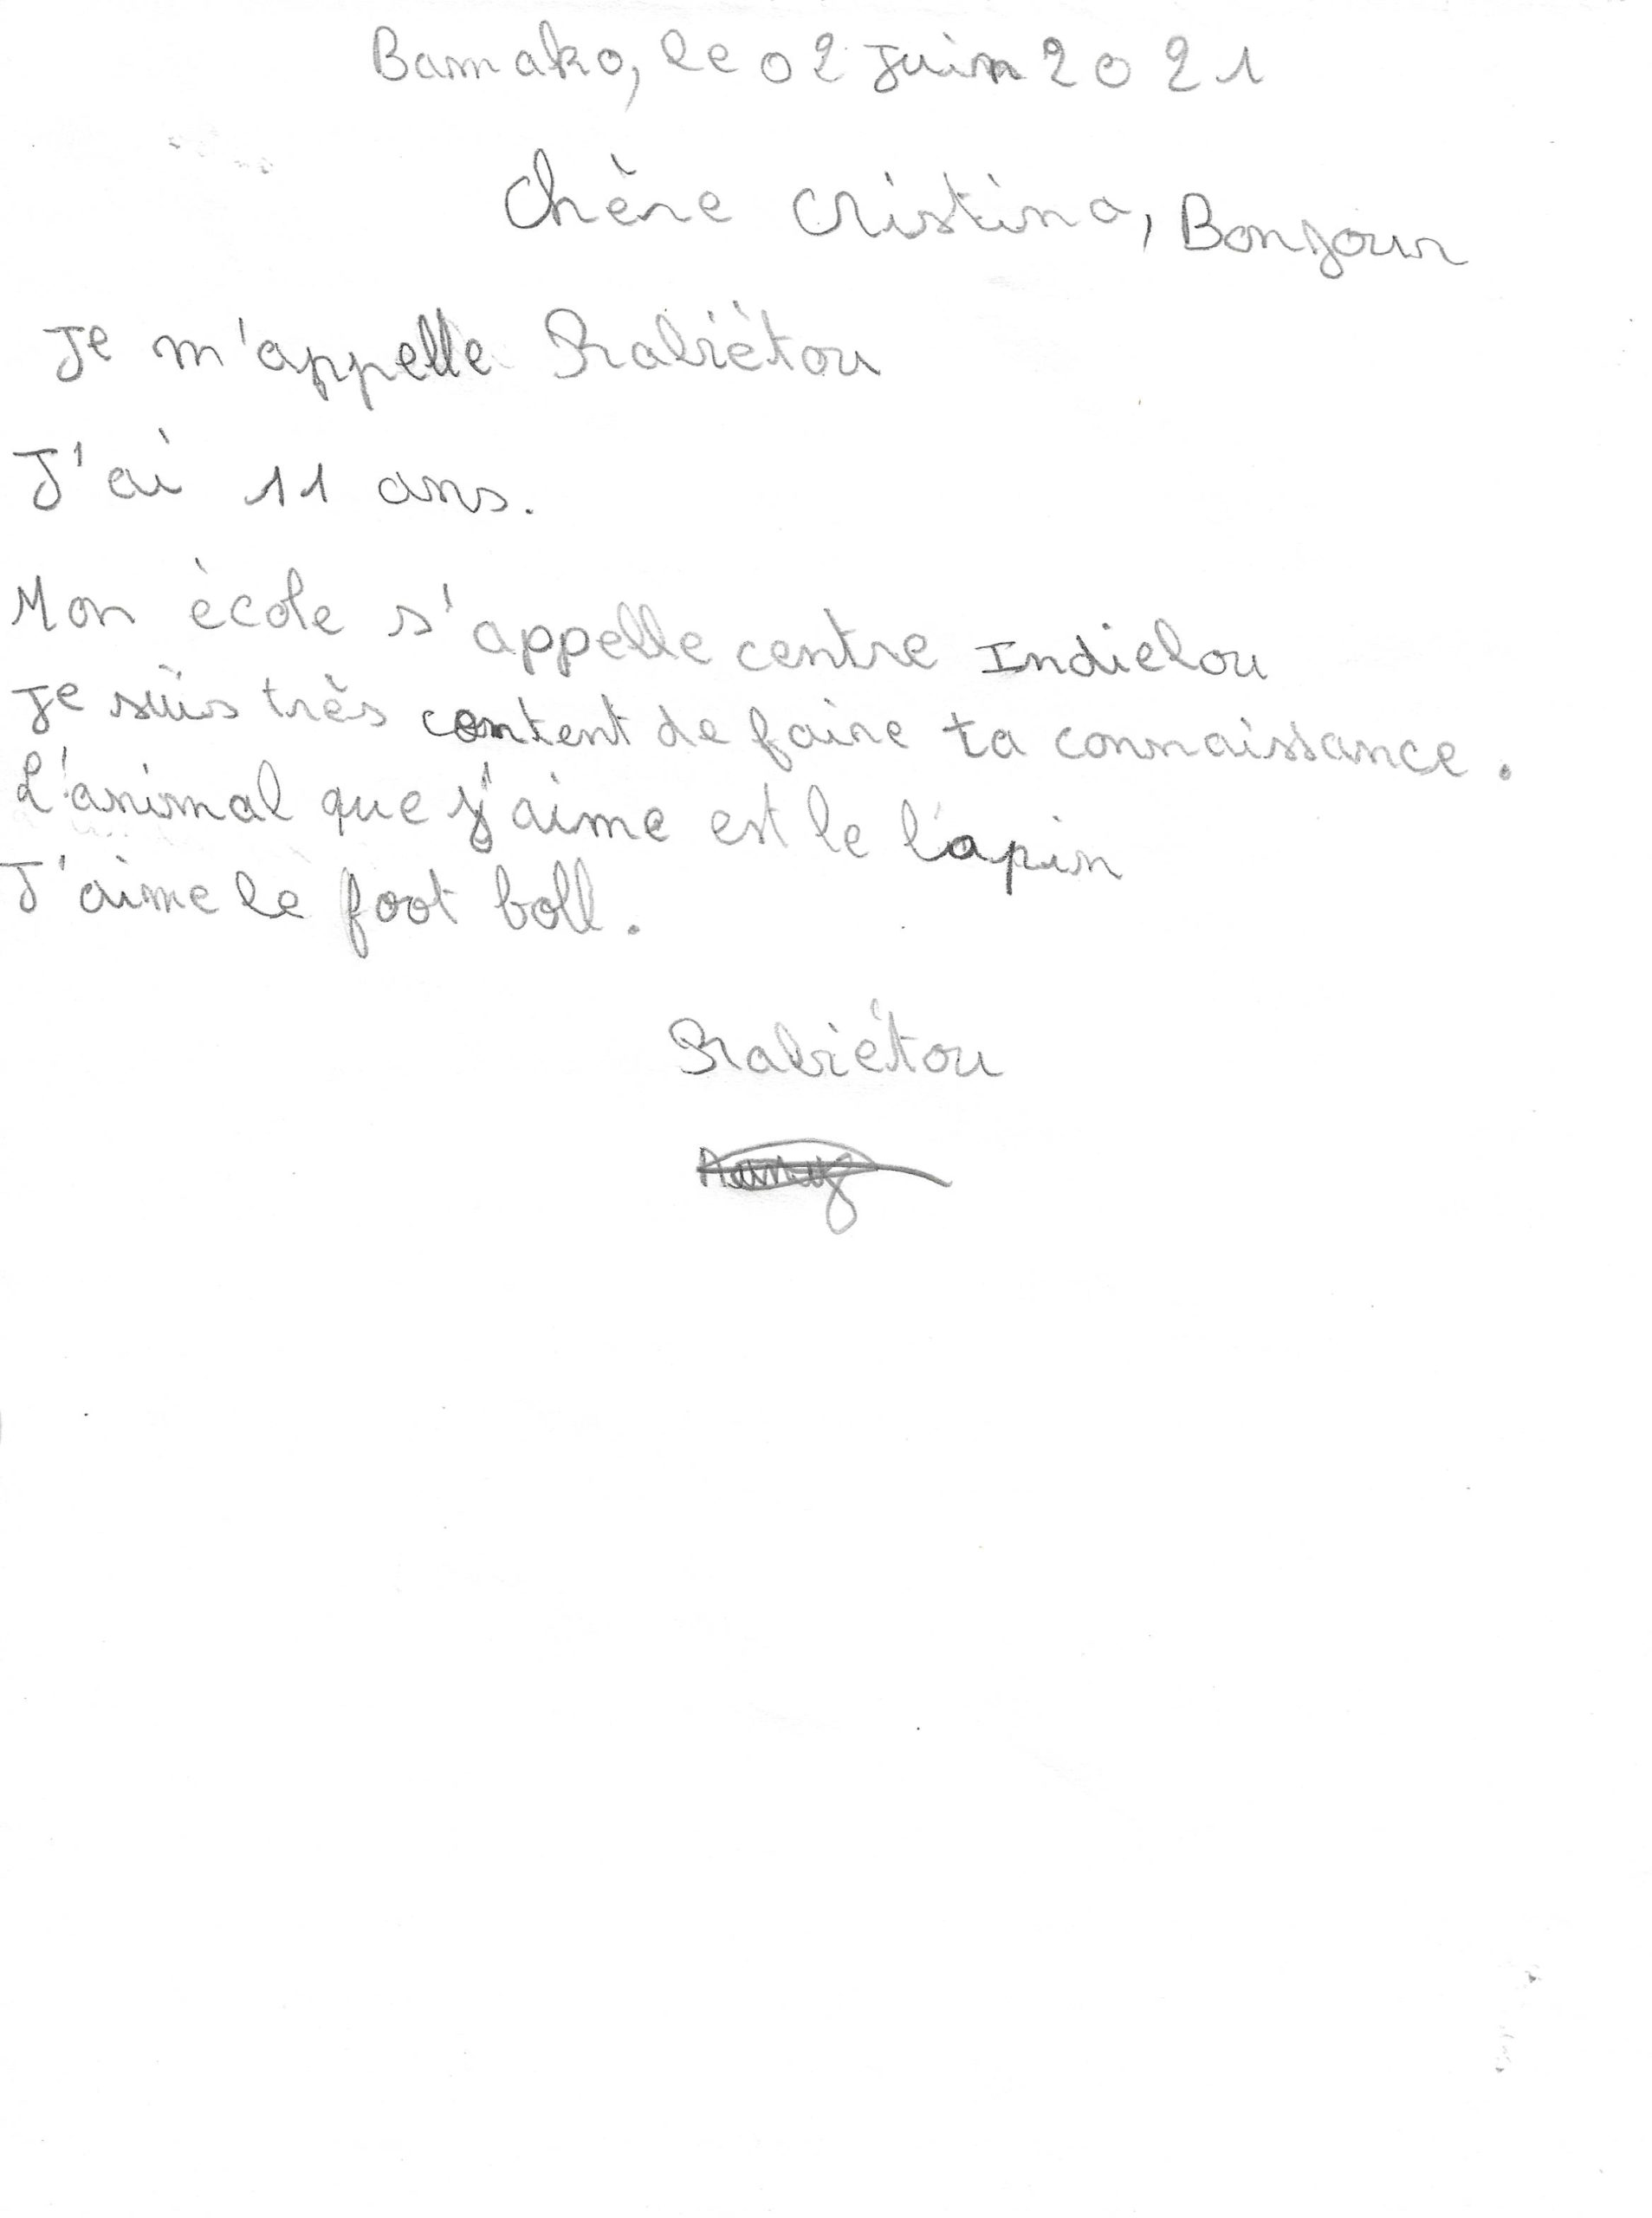 Bamako, le 02 Juin 2021
Chère Cristina, Bonjour
Je m'appelle Rabiètou
J'ai 11 ans.
Mon ècole s'appelle centre Indielou
Je suis très content de faire ta connaissance.
L'animal que j'aime est le lapin
J'aime le foot boll.
Rabiétou